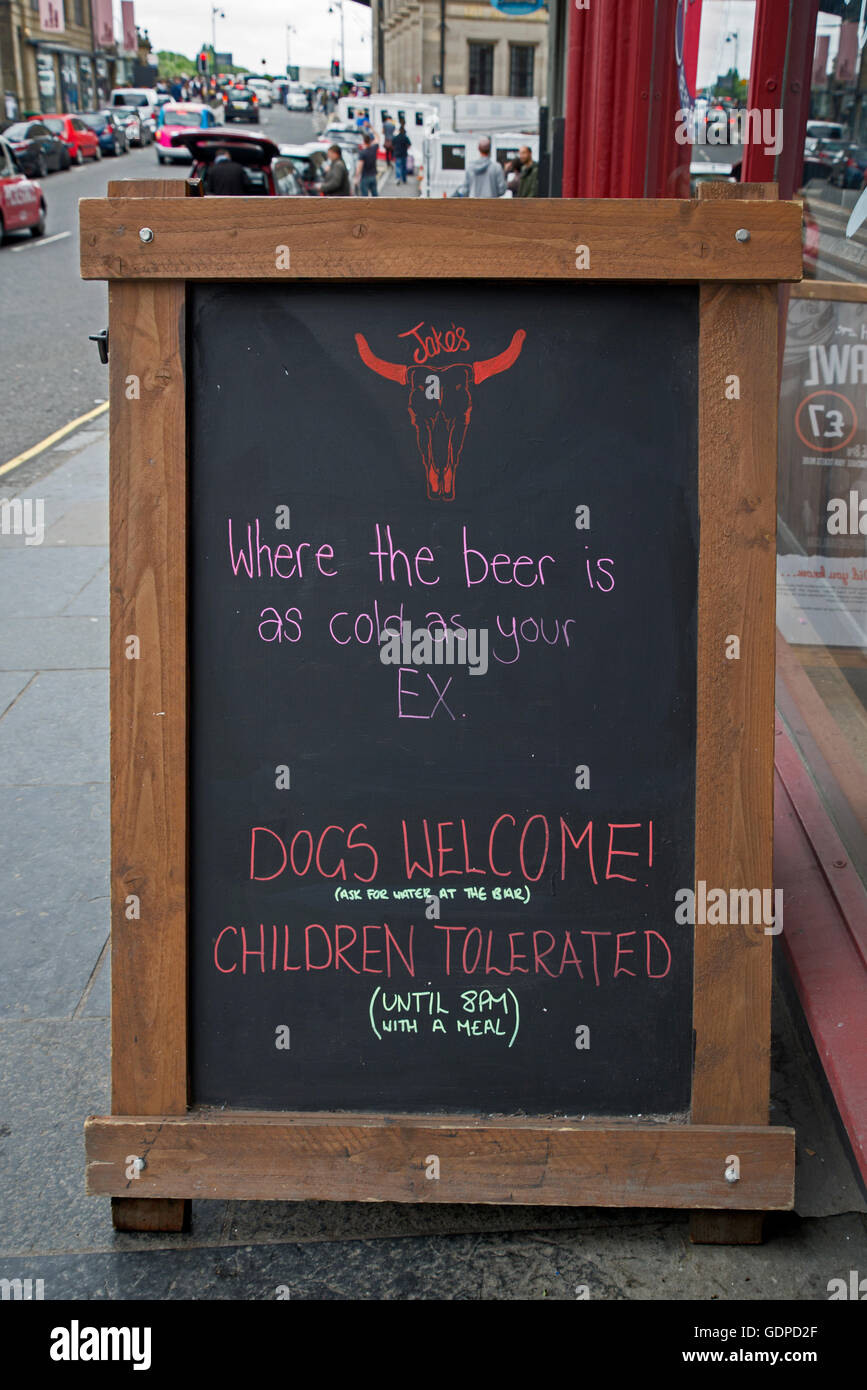 Jake's
Where the beer is
as cold as your
EX.
DOGS WELCOME!
(ASK FOR WATER AT THE BAR)
CHILDREN TOLERATED
(UNTIL 8PM
WITH A MEAL)
£7
alamy
Image ID: GDPD2F
www.alamy.com